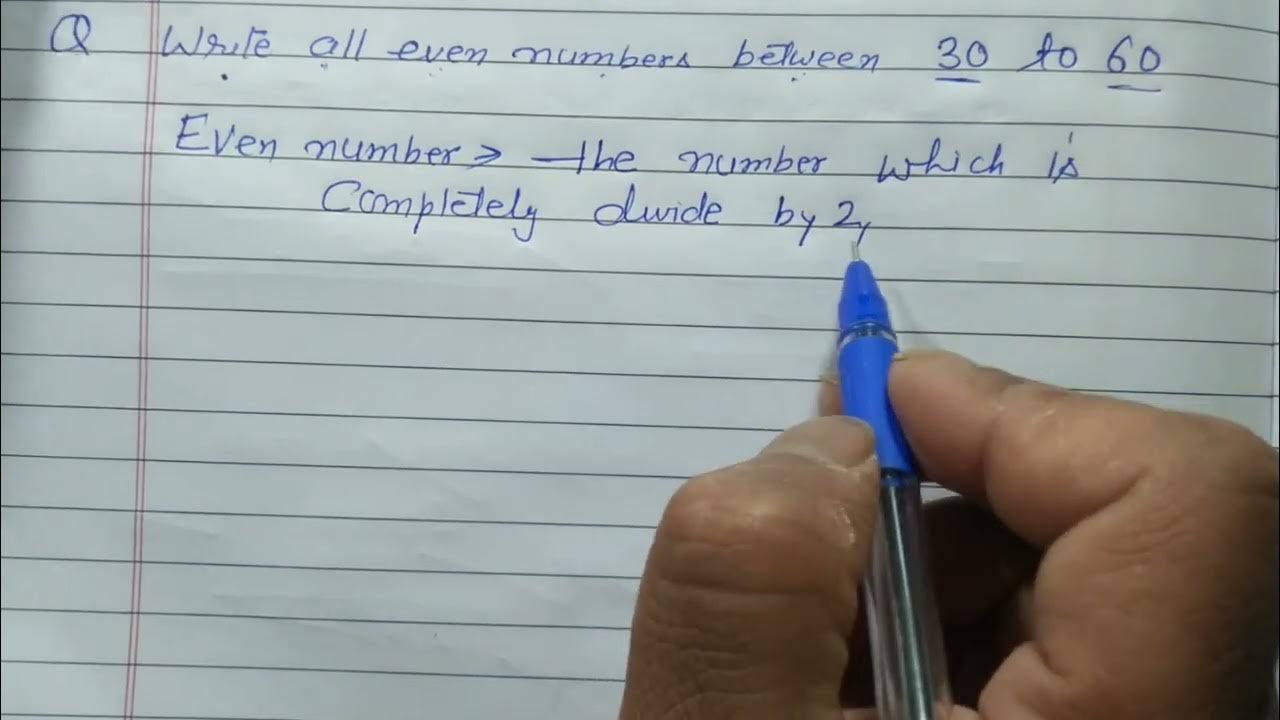 Q Write all even numbers between 30 to 60
Even number > the number which is
Completely divide by 2,